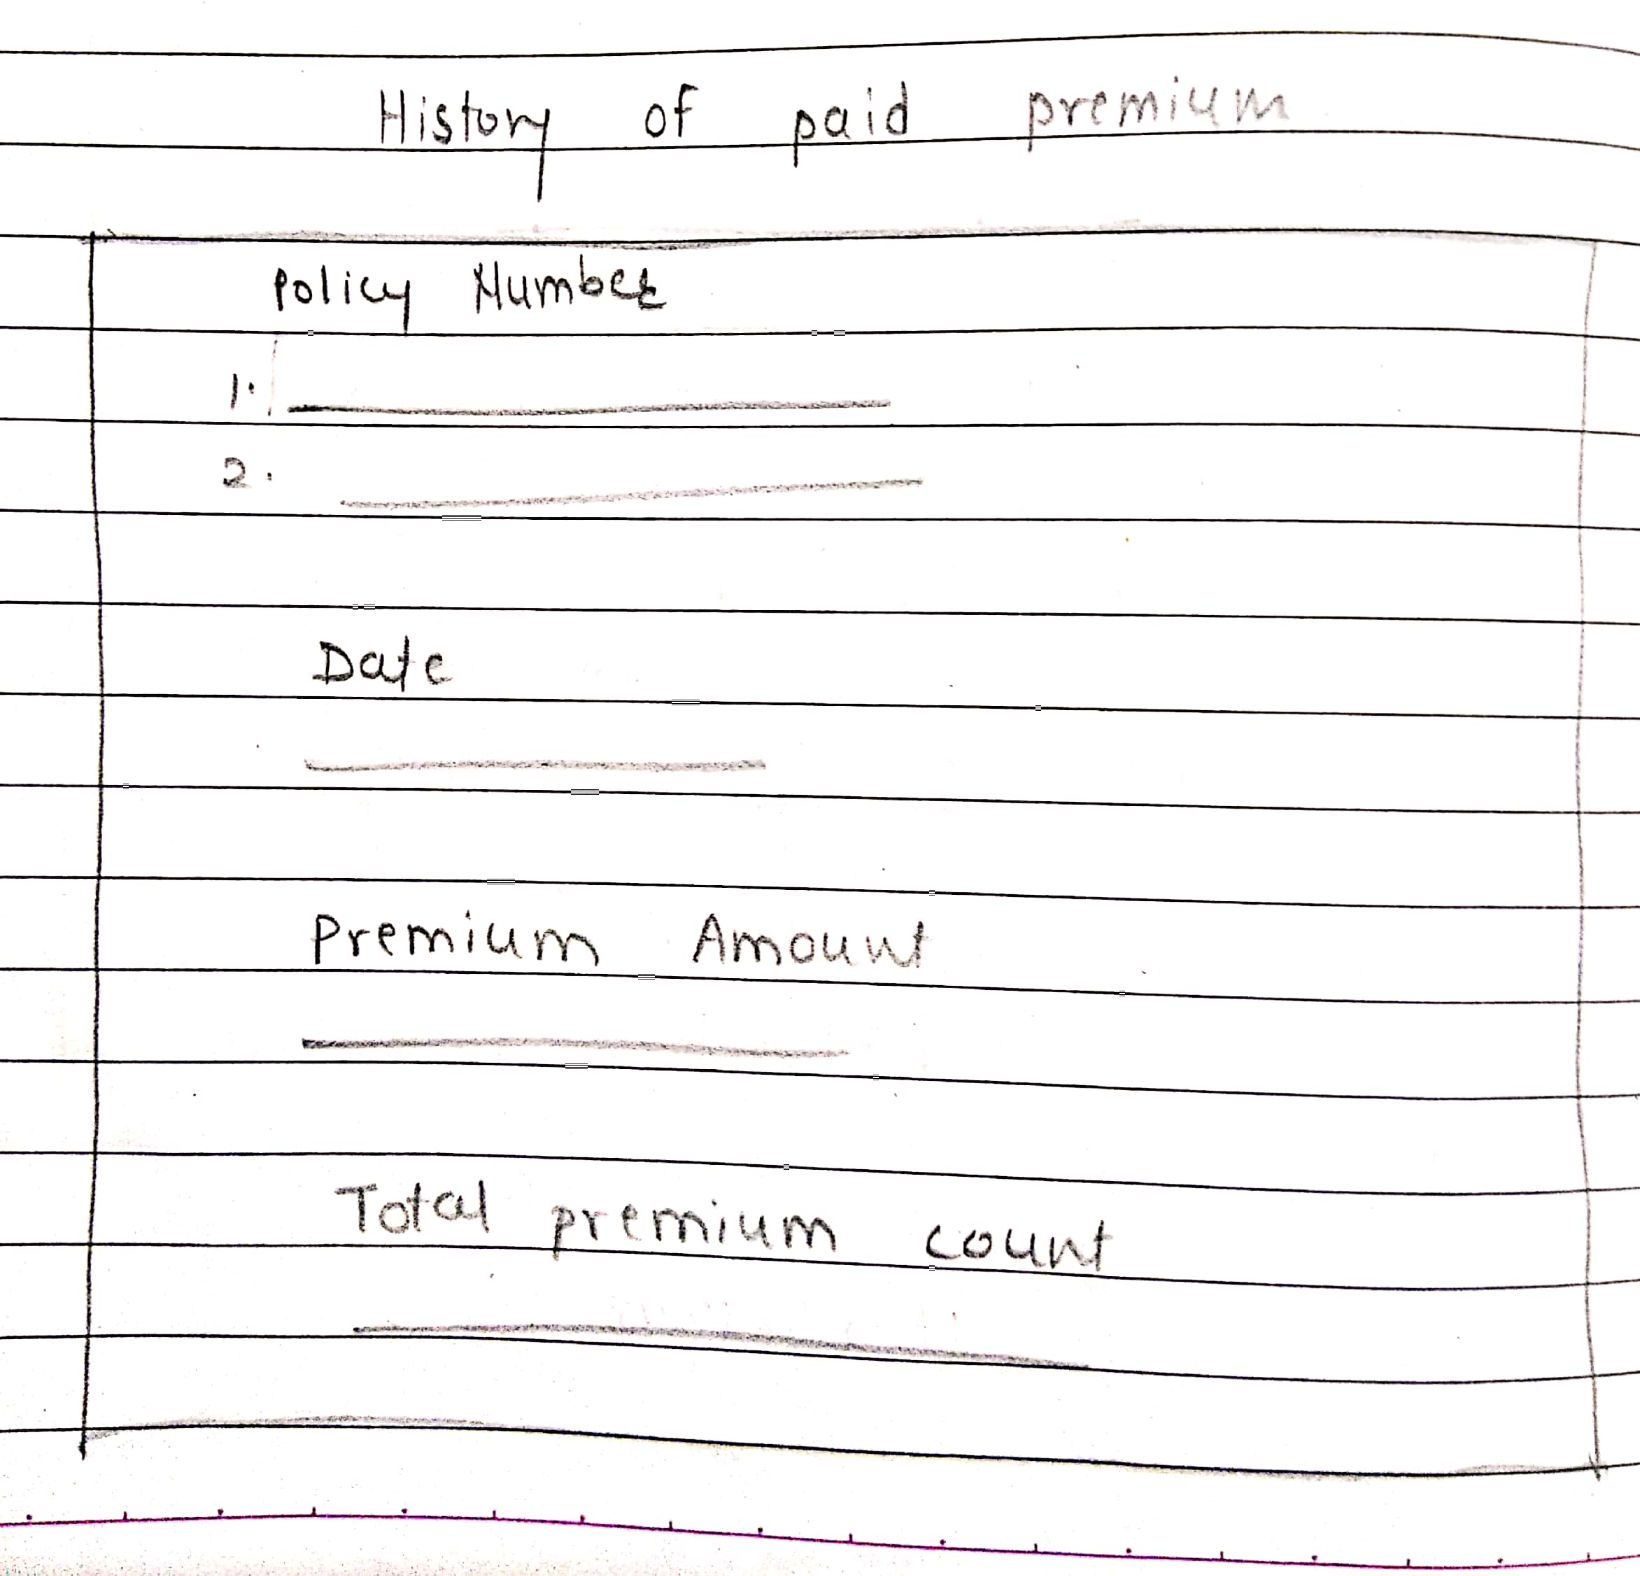 History of paid premium
Policy Number
1.
2.
Date
Premium Amount
Total premium count